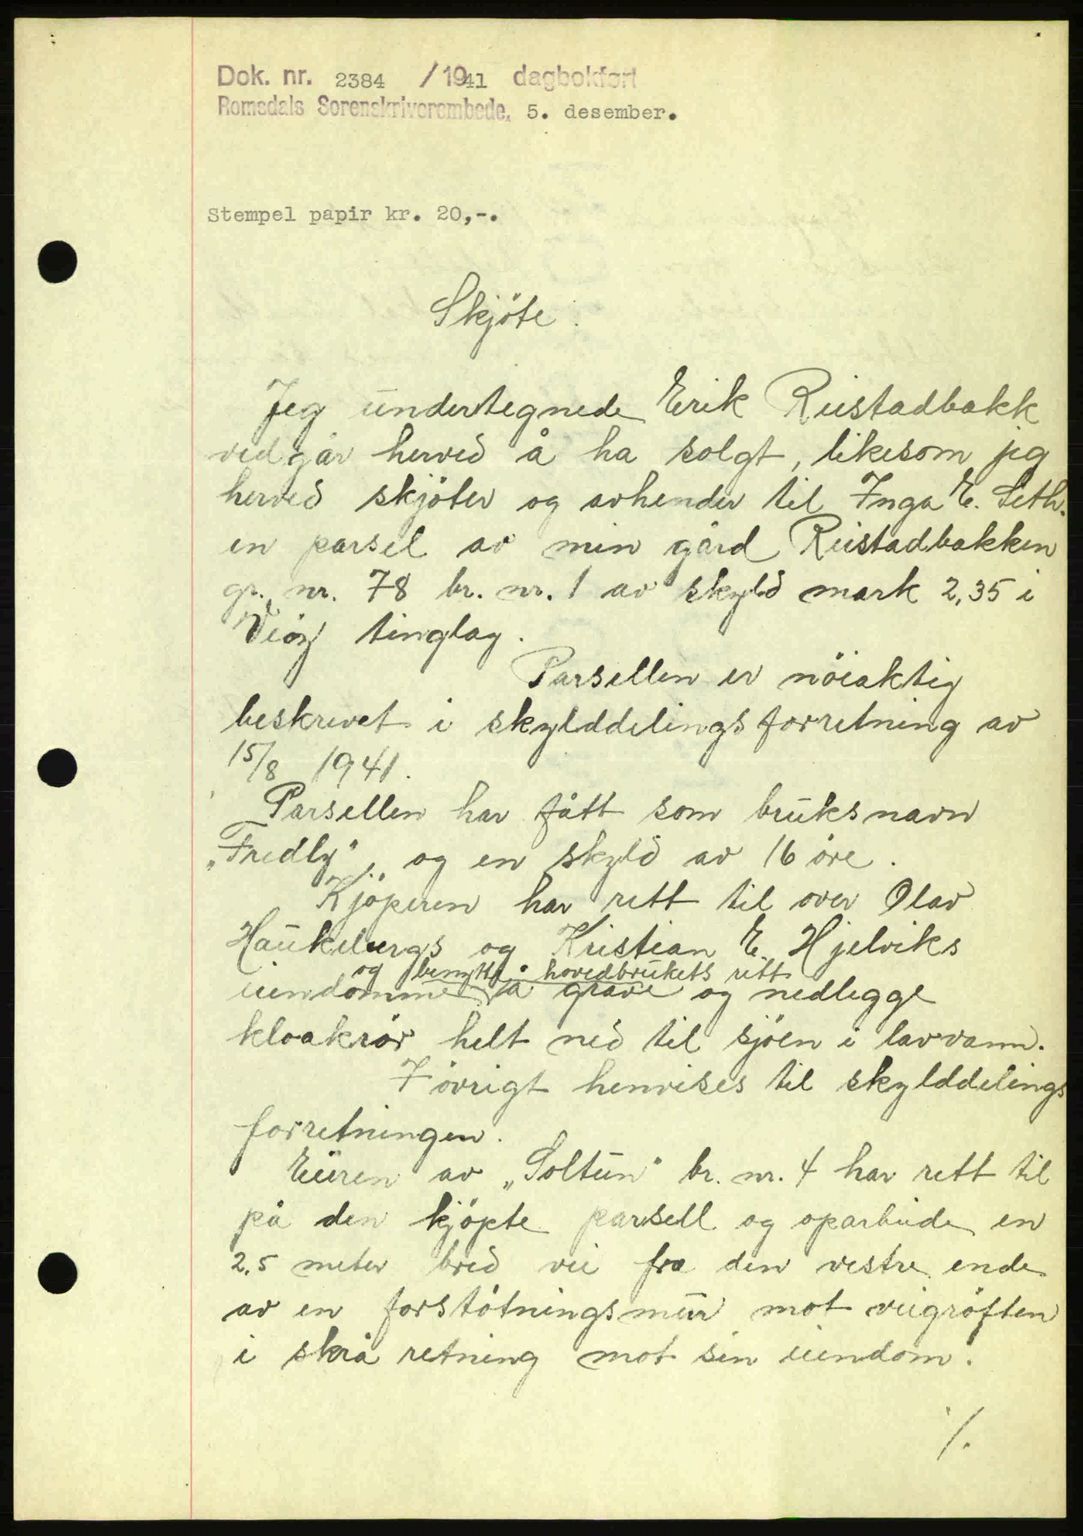 Dok. nr. 2384 /1941 dagbokført
Romsdals Sorenskriverembede, 5. desember.
Stempel papir kr. 20,-.
Skjöte.
Jeg undertegnede Erik Reistadbakk
vedgår herved å ha solgt, likesom jeg
herved skjöter og avhender til Inga E. Seth.
en parsel av min gård Reistadbakken
gr. nr. 78 br. nr. 1 av skyld mark 2,35 i
Veöy tinglag.
Parsellen er nöiaktig
beskrevet i skylddelingsforretning av
15/8 1941.
Parsellen har fått som bruksnavn
„Fredly", og en skyld av 16 öre.
Kjöperen har rett til over Olav
Haukebergs og Kristian E. Hjelviks
og benytte hovedbrukets rett
eiendomme å grave og nedlegge
kloakrör helt ned til sjöen i lavvann.
I övrigt henvises til skylddelings
forretningen.
Eieren av „Soltun" br. nr. 4 har rett til
på den kjöpte parsell og oparbeide en
2,5 meter bred vei fra den vestre ende
av en forstötningsmur mot veigröften
i skrå retning mot sin eiendom.
./.